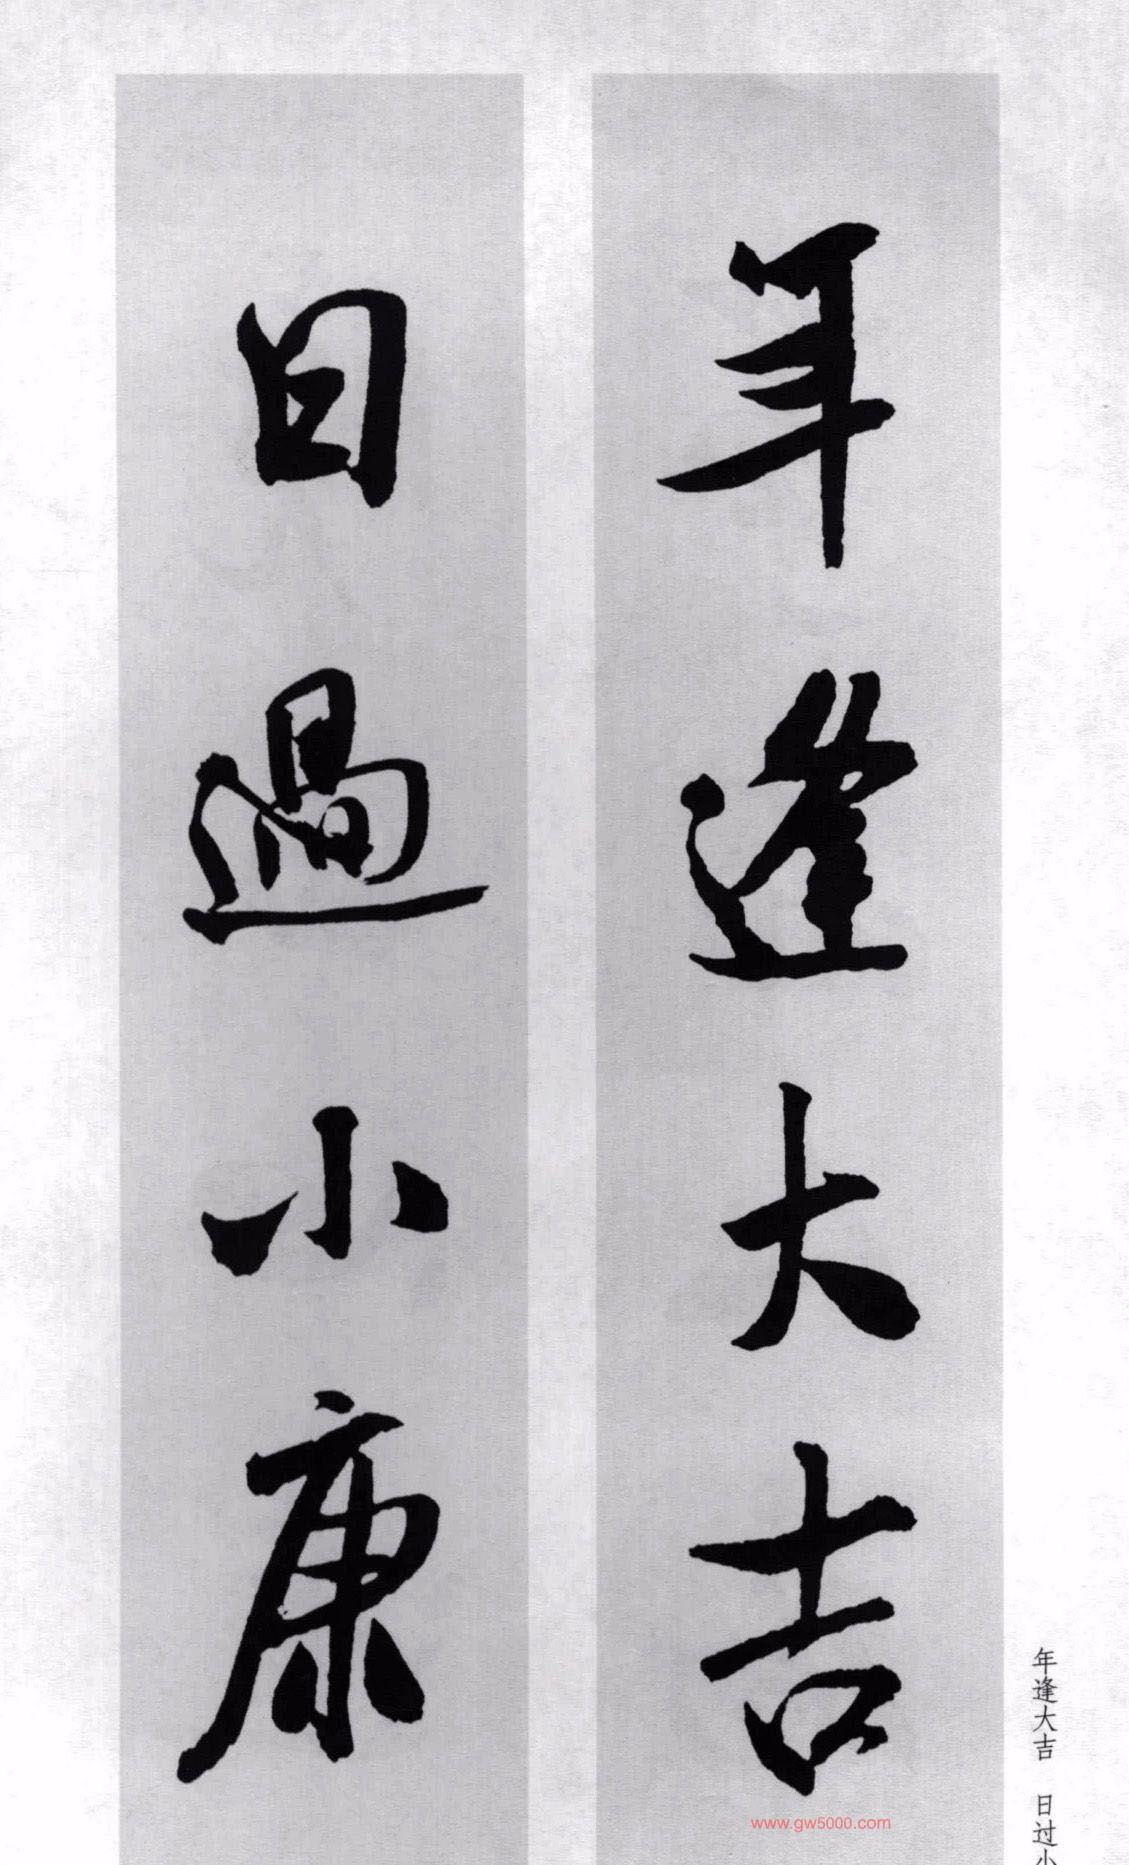 年逢大吉
日過小康
年逢大吉 日过小
www.gw5000.com